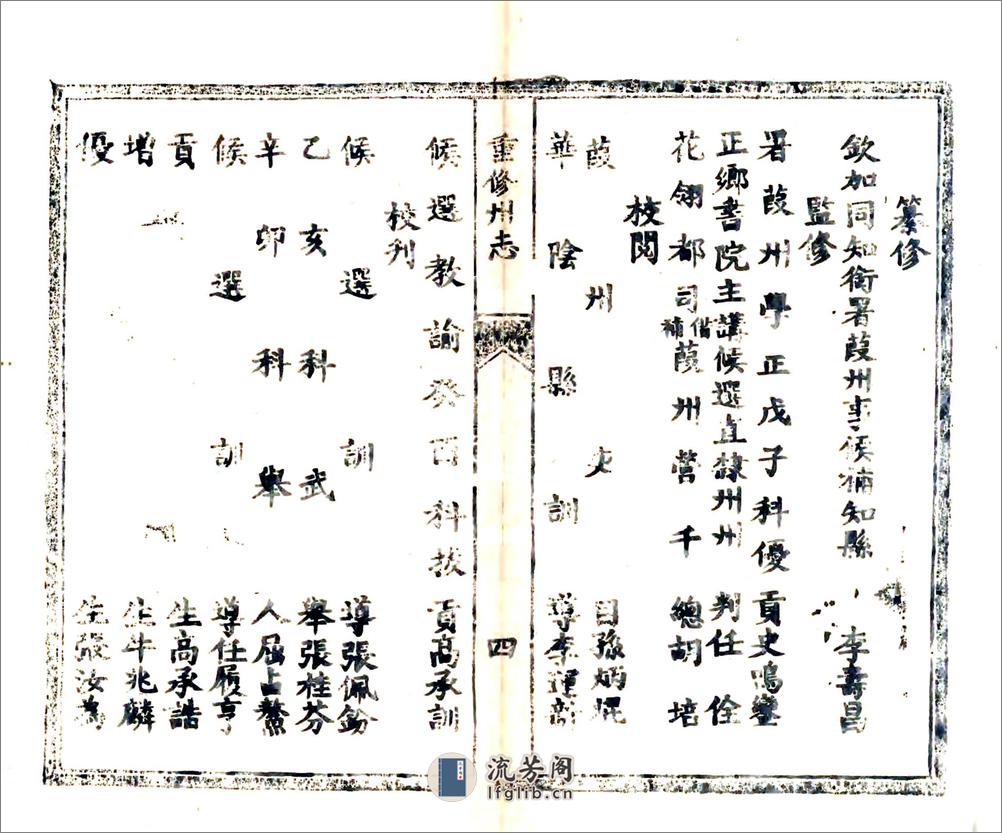 纂修
欽加同知銜署葭州事候補知縣李壽昌
監修
署葭州學正戊子科優貢史鳴鑾
正鄉書院主講候選直隸州州判任佺
花翎都司借補葭州營千總胡培
校閱
葭州吏目孫炳焜
華陰縣訓導李運新
重修州志
四
候選教諭癸酉科拔貢高承訓
校刋
候選訓導張佩鈖
乙亥科武舉張桂芬
辛卯科舉人屈占鰲
候選訓導任履亨
貢生高承誥
增生牛兆麟
優生張汝為
流芳阁
lfglib.cn